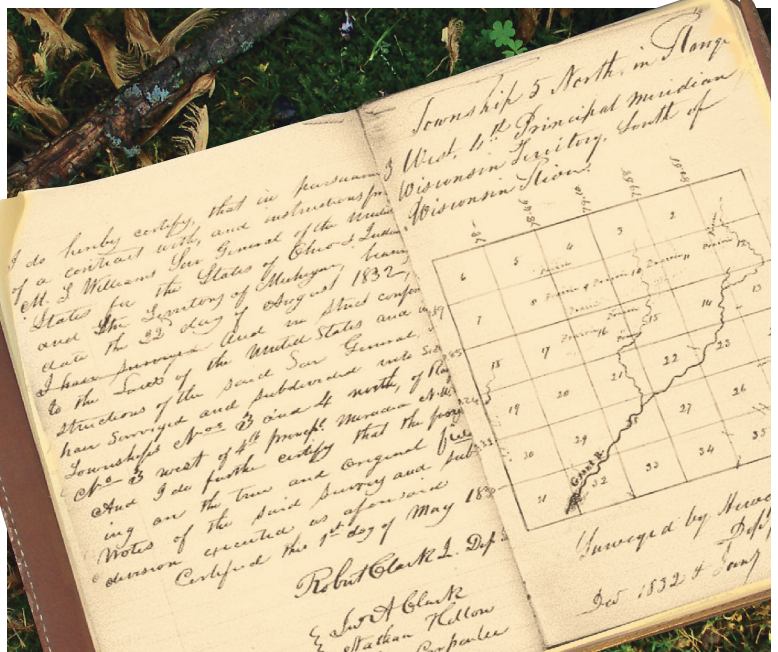 I do hereby certify, that in pursuan
of a contract with, and instructions fr
M. T. Williams Sur General of the United
States for the States of Ohio & India
and the Territory of Michigan, bearing
date the 22 day of August 1832,
I have surveyed and in strict confor
to the Laws of the United States and in
structions of the said Sur General,
have surveyed and subdivided into Sec
Townships Nos 3 and 4 north, of Ra
No 3 west of 4th principl Meridian
And I do further certify that the foreg
ing are the true and original field
Notes of the said survey and sub
division executed as aforesaid
Certified this 1st day of May 183
Robert Clark J. Dep. S
Jno A Clark
Nathan
Carpenter
Township 5 North, in Range
3 West, 4th Principal meridian
Wisconsin Territory, South of
Wisconsin River.
6 5 4 3 2
7 8 9 10 11 12
Prairie Prairie Prairie
18 17 16 15 14 13
19 20 21 22 23
30 29 27 26
31 32 33 34 35
Grant R.
Surveyed by
Dep
Dec 1832 & Jany